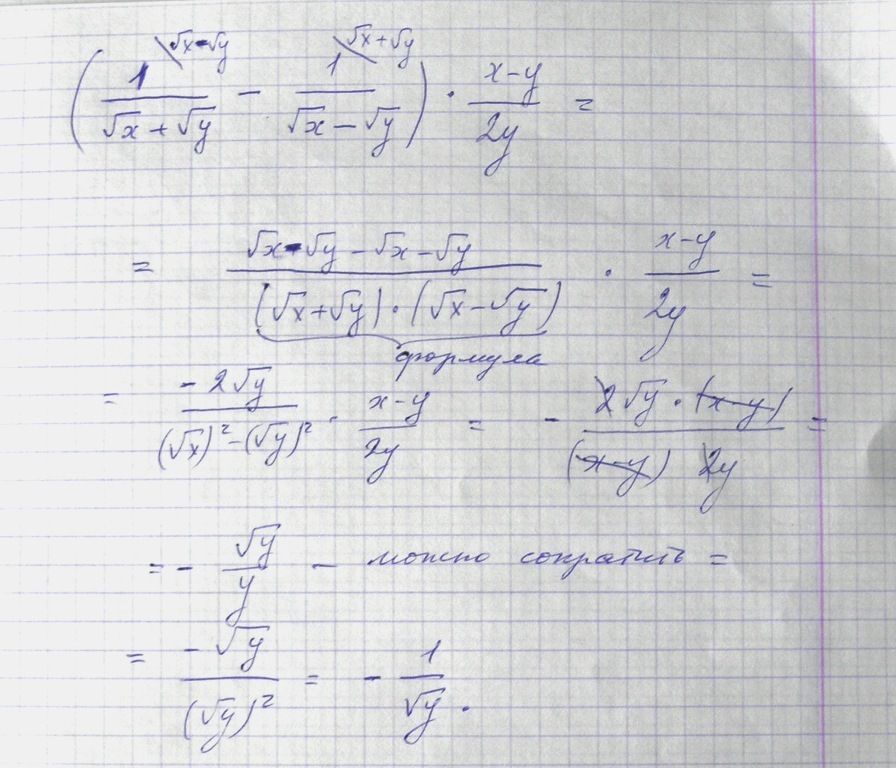 (1^{\√x-√y}/(√x+√y) - 1^{\√x+√y}/(√x-√y)) · (x-y)/2y =
= (√x-√y-√x-√y)/((√x+√y)·(√x-√y)) · (x-y)/2y =
формула
= -2√y/((√x)²-(√y)²) · (x-y)/2y = - 2√y·(x-y)/((x-y) 2y) =
= - √y/y - можно сократить =
= -√y/(√y)² = - 1/√y.